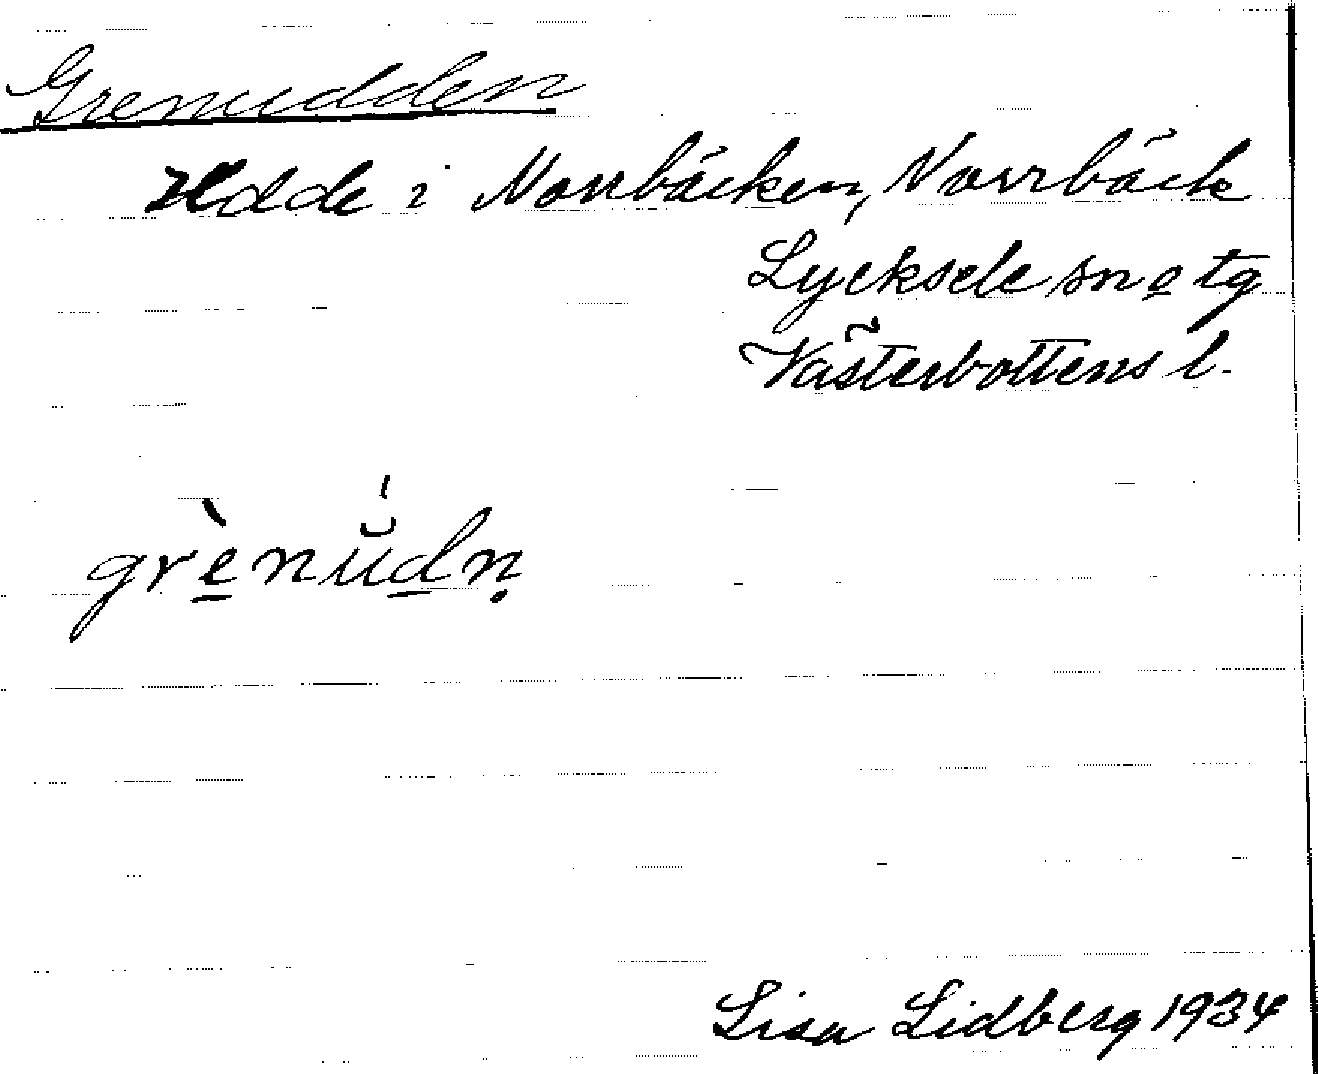 Grenudden
Udde i Norrbäcken, Norrbäck
Lycksele sn o tg
Västerbottens l.
grènŭ́dn̥
Lisa Lidberg 1934